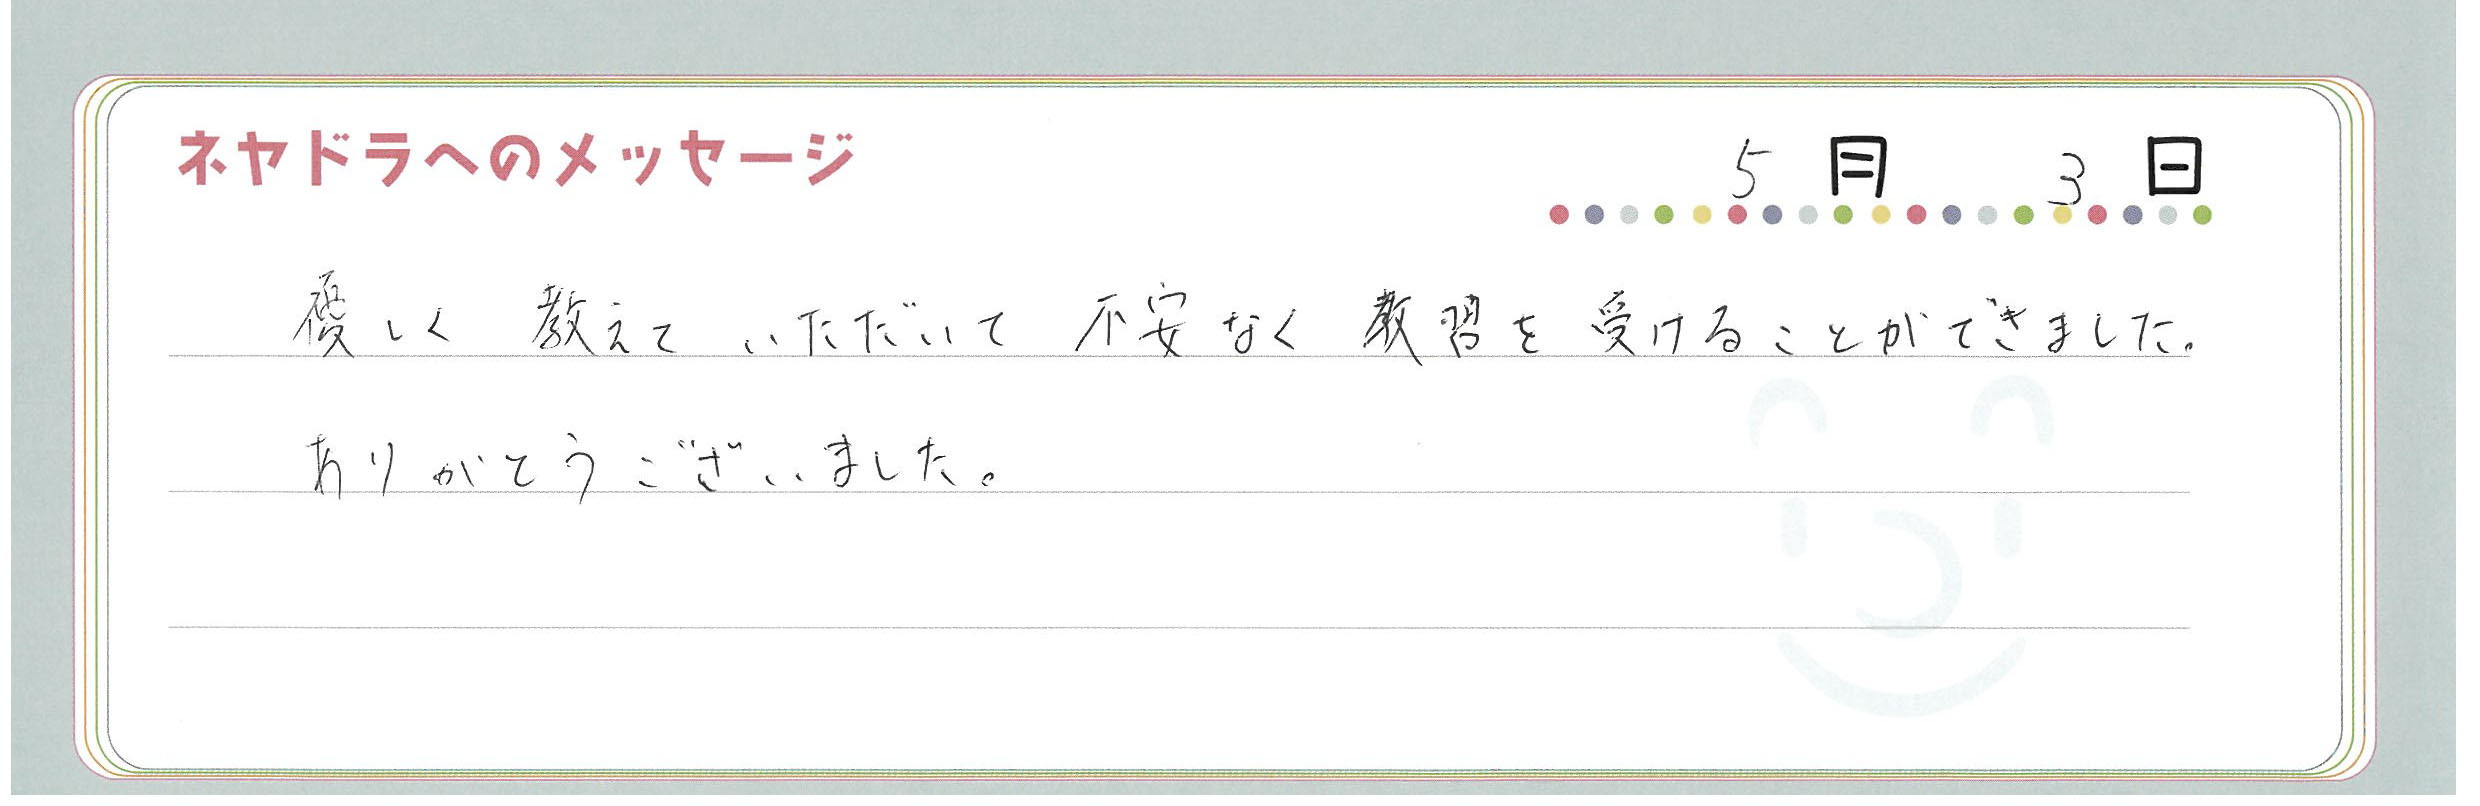 ネヤドラへのメッセージ
5月3日
優しく教えていただいて不安なく教習を受けることができました。
ありがとうございました。